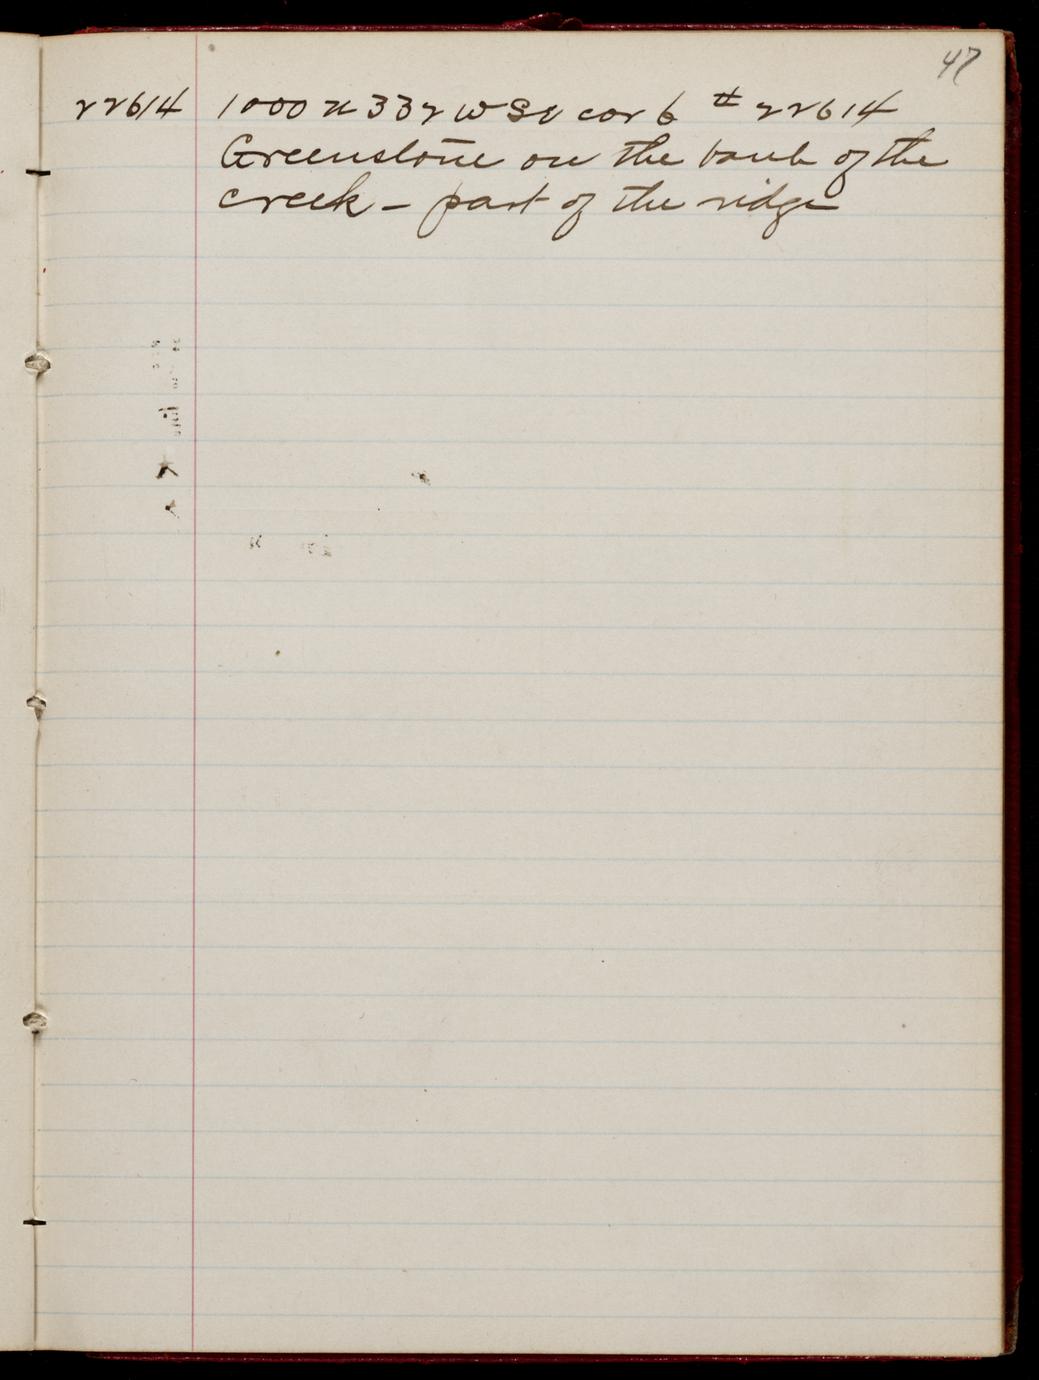 47
22614 1000 N 332 W SE cor 6 # 22614
Greenstone on the bank of the
creek - part of the ridge